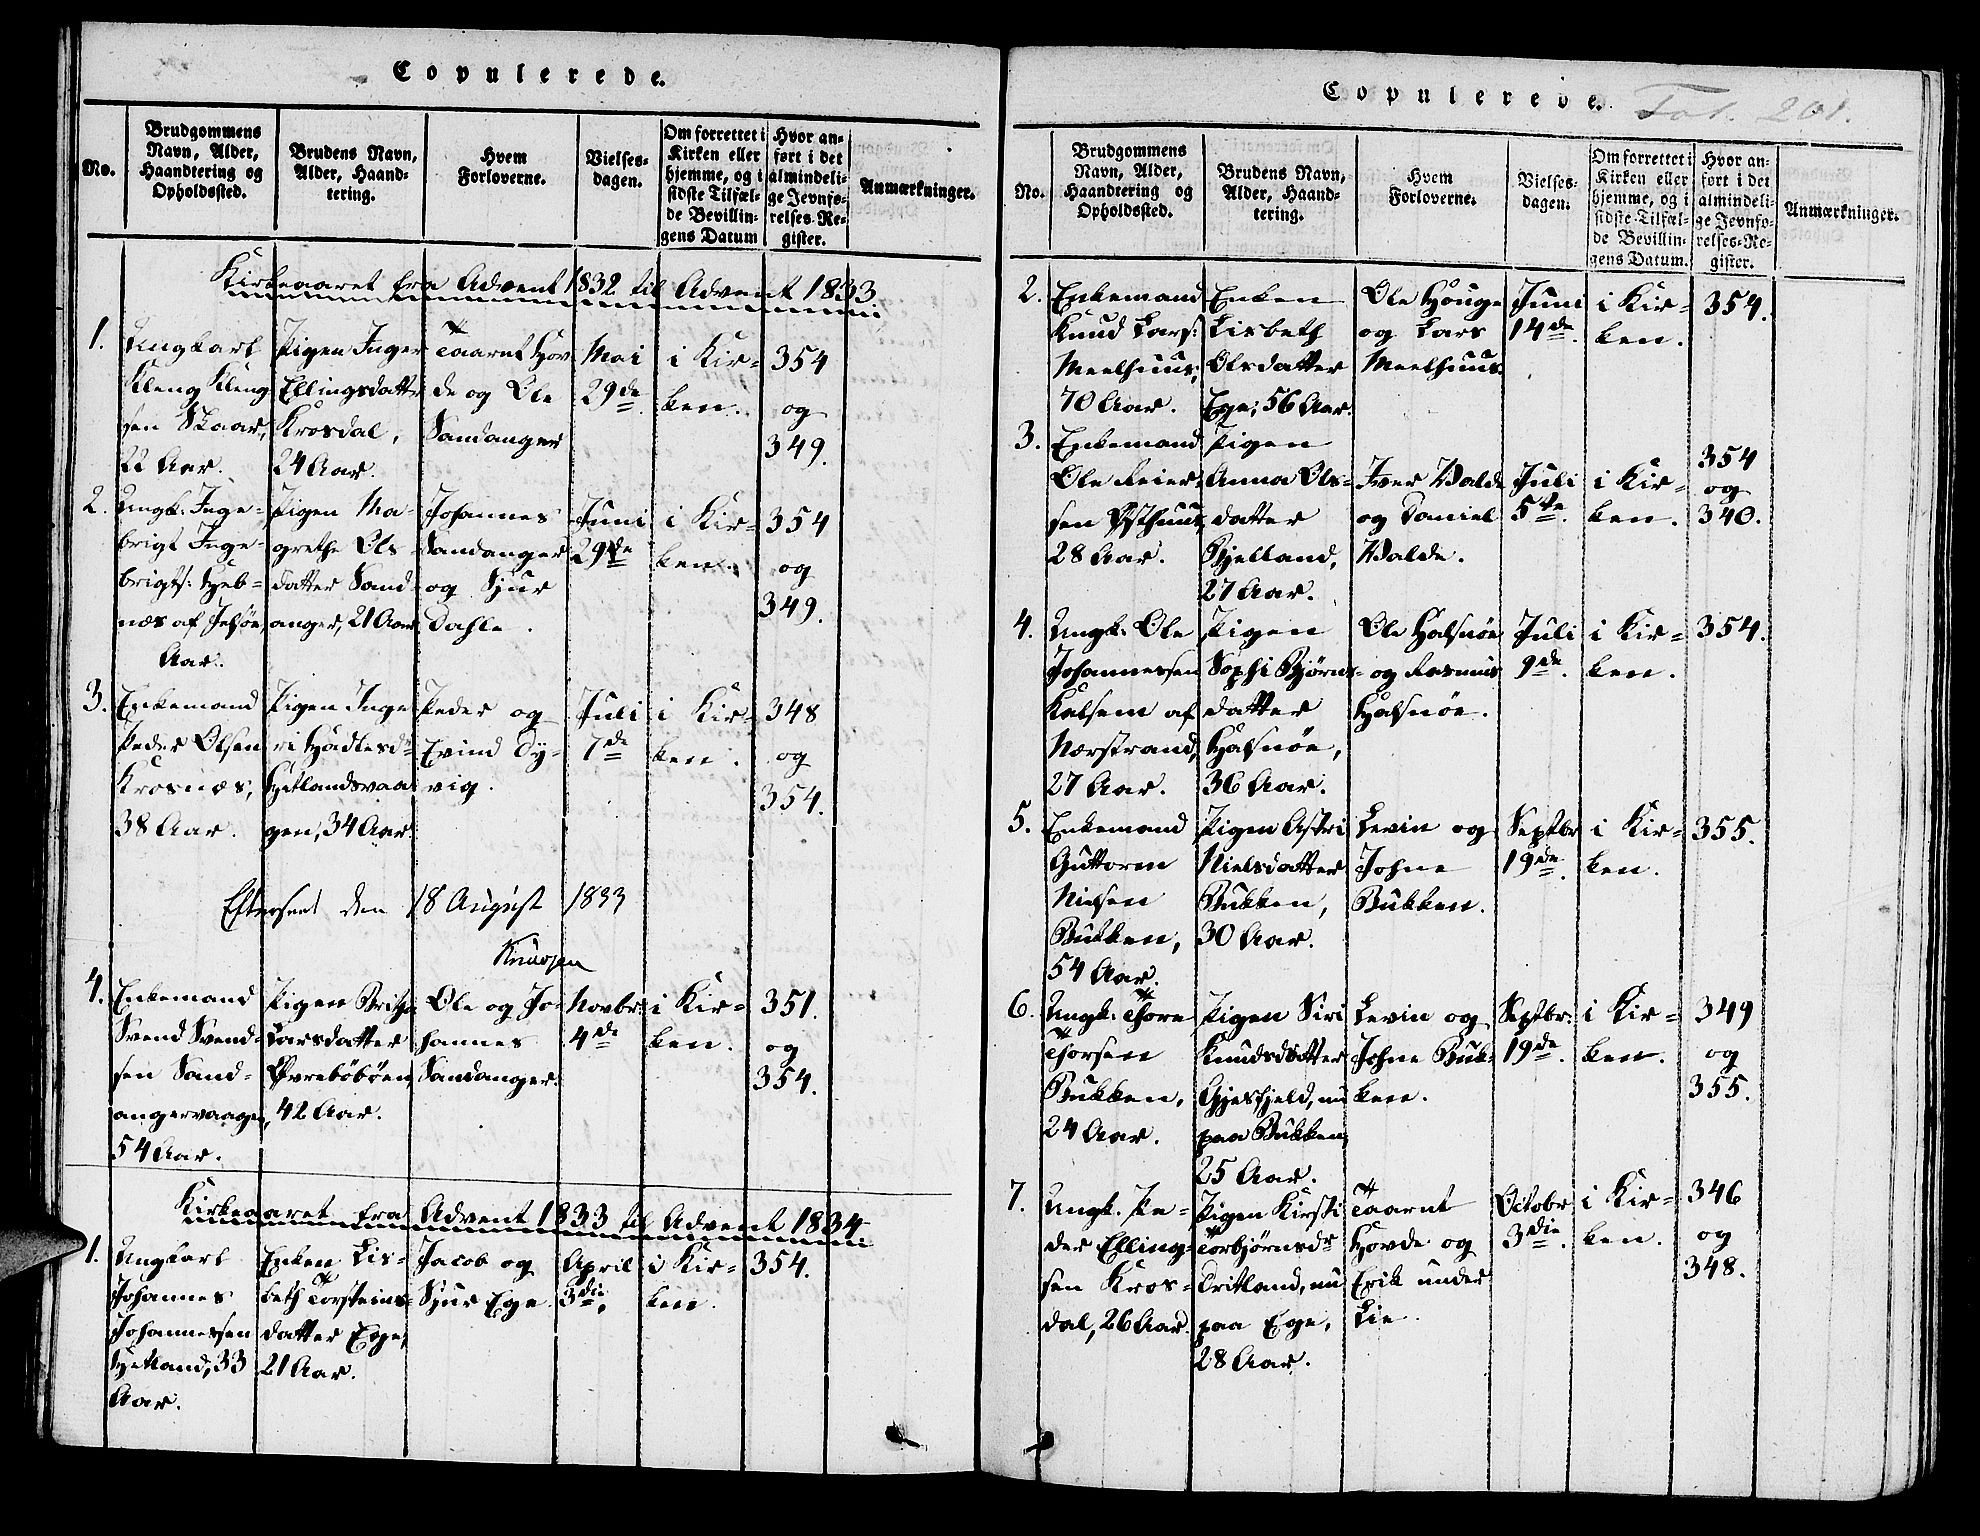 Copulerede.
No.
Brudgommens
Navn, Alder,
Haandtering og
Opholdssted.
Brudens Navn,
Alder, Haand-
tering.
Hvem
Forloverne.
Vielses-
dagen.
Om forrettet i
Kirken eller
hjemme, og i
sidste Tilfæl-
de Bevillin-
gens Datum
Hvor an-
ført i det
almindeli-
ge Jevnfø-
relses-Re-
gister.
Anmærkninger.
Kirkeaaret fra Advent 1832 til Advent 1833.
1.
Ungkarl
Kleng Kleng
sen Skaar,
22 Aar.
Pigen Inger
Ellingsdatter
Krosdal,
24 Aar.
Taarnt Hov
de og Ole
Sandanger
Mai
29de
i Kir-
ken.
354
og
349.
2.
Ungk. Inge-
brigt Inge-
brigts: Hjeb-
næs af
Aar.
Pigen Ma-
grethe Ols
datter Sand-
anger, 21 Aar
Johannes
Sandanger
og Sjur
Dahle.
Juni
29de
i Kir-
ken.
354
og
349.
3.
Enkemand
Peder Olsen
Krosnæs,
38 Aar.
Pigen Inge
ri Hødlesdr
Hetlandsvaa
gen, 34 Aar.
Peder og
Evind Dy-
vig.
Juli
7de
i Kir-
ken.
348
og
354.
Efterseet den 18 August 1833
4.
Enkemand
Svend Svend-
sen Sand-
angervaagen,
54 Aar.
Pigen Britha
Larsdatter
Øvrebøbøen
42 Aar.
Ole og Jo-
hannes
Sandanger.
Novbr:
4de
i Kir-
ken.
351.
og
354.
Kirkeaaret fra Advent 1833 til Advent 1834.
1.
Ungkarl
Johannes
Johannessen
Hetland, 33
Aar.
Enken Lis-
beth Torsteins-
datter Ege,
21 Aar.
Jacob og
Sjur Ege
April
3die,
i Kir-
ken.
354.
Copulerede.
Fol. 201.
No.
Brudgommens
Navn, Alder,
Haandtering og
Opholdssted.
Brudens Navn,
Alder, Haand-
tering.
Hvem
Forloverne.
Vielses-
dagen.
Om forrettet i
Kirken eller
hjemme, og i
sidste Tilfæl-
de Bevillin-
gens Datum.
Hvor an-
ført i det
almindeli-
ge Jevnfø-
relses-Re-
gister.
Anmærkninger.
2.
Enkemand
Knud Lars:
Meelhuus,
70 Aar.
Enken
Lisbeth
Olsdatter
Ege, 56 Aar.
Ole Houge
og Lars
Meelhuus.
Juni
14de.
i Kir-
ken.
354.
3.
Enkemand
Ole Reier
sen Østhuus,
28 Aar.
Pigen
Anna Ols-
datter
Bjelland,
27 Aar.
Iver Walde
og Daniel
Walde.
Juli
5te.
i Kir-
ken.
354
og
340.
4.
Ungk. Ole
Johannessen
Kalsem af
Nærstrand,
27 Aar.
Pigen
Sophi Bjørns-
datter
Halsnøe,
36 Aar.
Ole Halsnøe
og Rasmus
Halsnøe.
Juli
9de.
i Kir-
ken.
354.
5.
Enkemand
Guttorm
Nielsen
Bukken,
54 Aar.
Pigen Astri
Nielsdatter
Bukken,
30 Aar.
Levin og
Johne
Bukken.
Septbr
19de.
i Kir-
ken.
355.
6.
Ungk. Thore
Thorsen
Bukken,
24 Aar.
Pigen Siri
Knudsdatter
Gjesfjeld, nu
paa Bukken
25 Aar.
Levin og
Johne Buk-
ken.
Septbr:
19de.
i Kir-
ken.
349
og
355.
7.
Ungk. Pe-
der Elling-
sen Kros-
dal, 26 Aar.
Pigen Kirsti
Torbjørnsdr
Tritland, nu
paa Ege,
28 Aar.
Taarnt
Hovde og
Erik under
Lie.
Octobr
3die.
i Kir-
ken.
346
og
348.